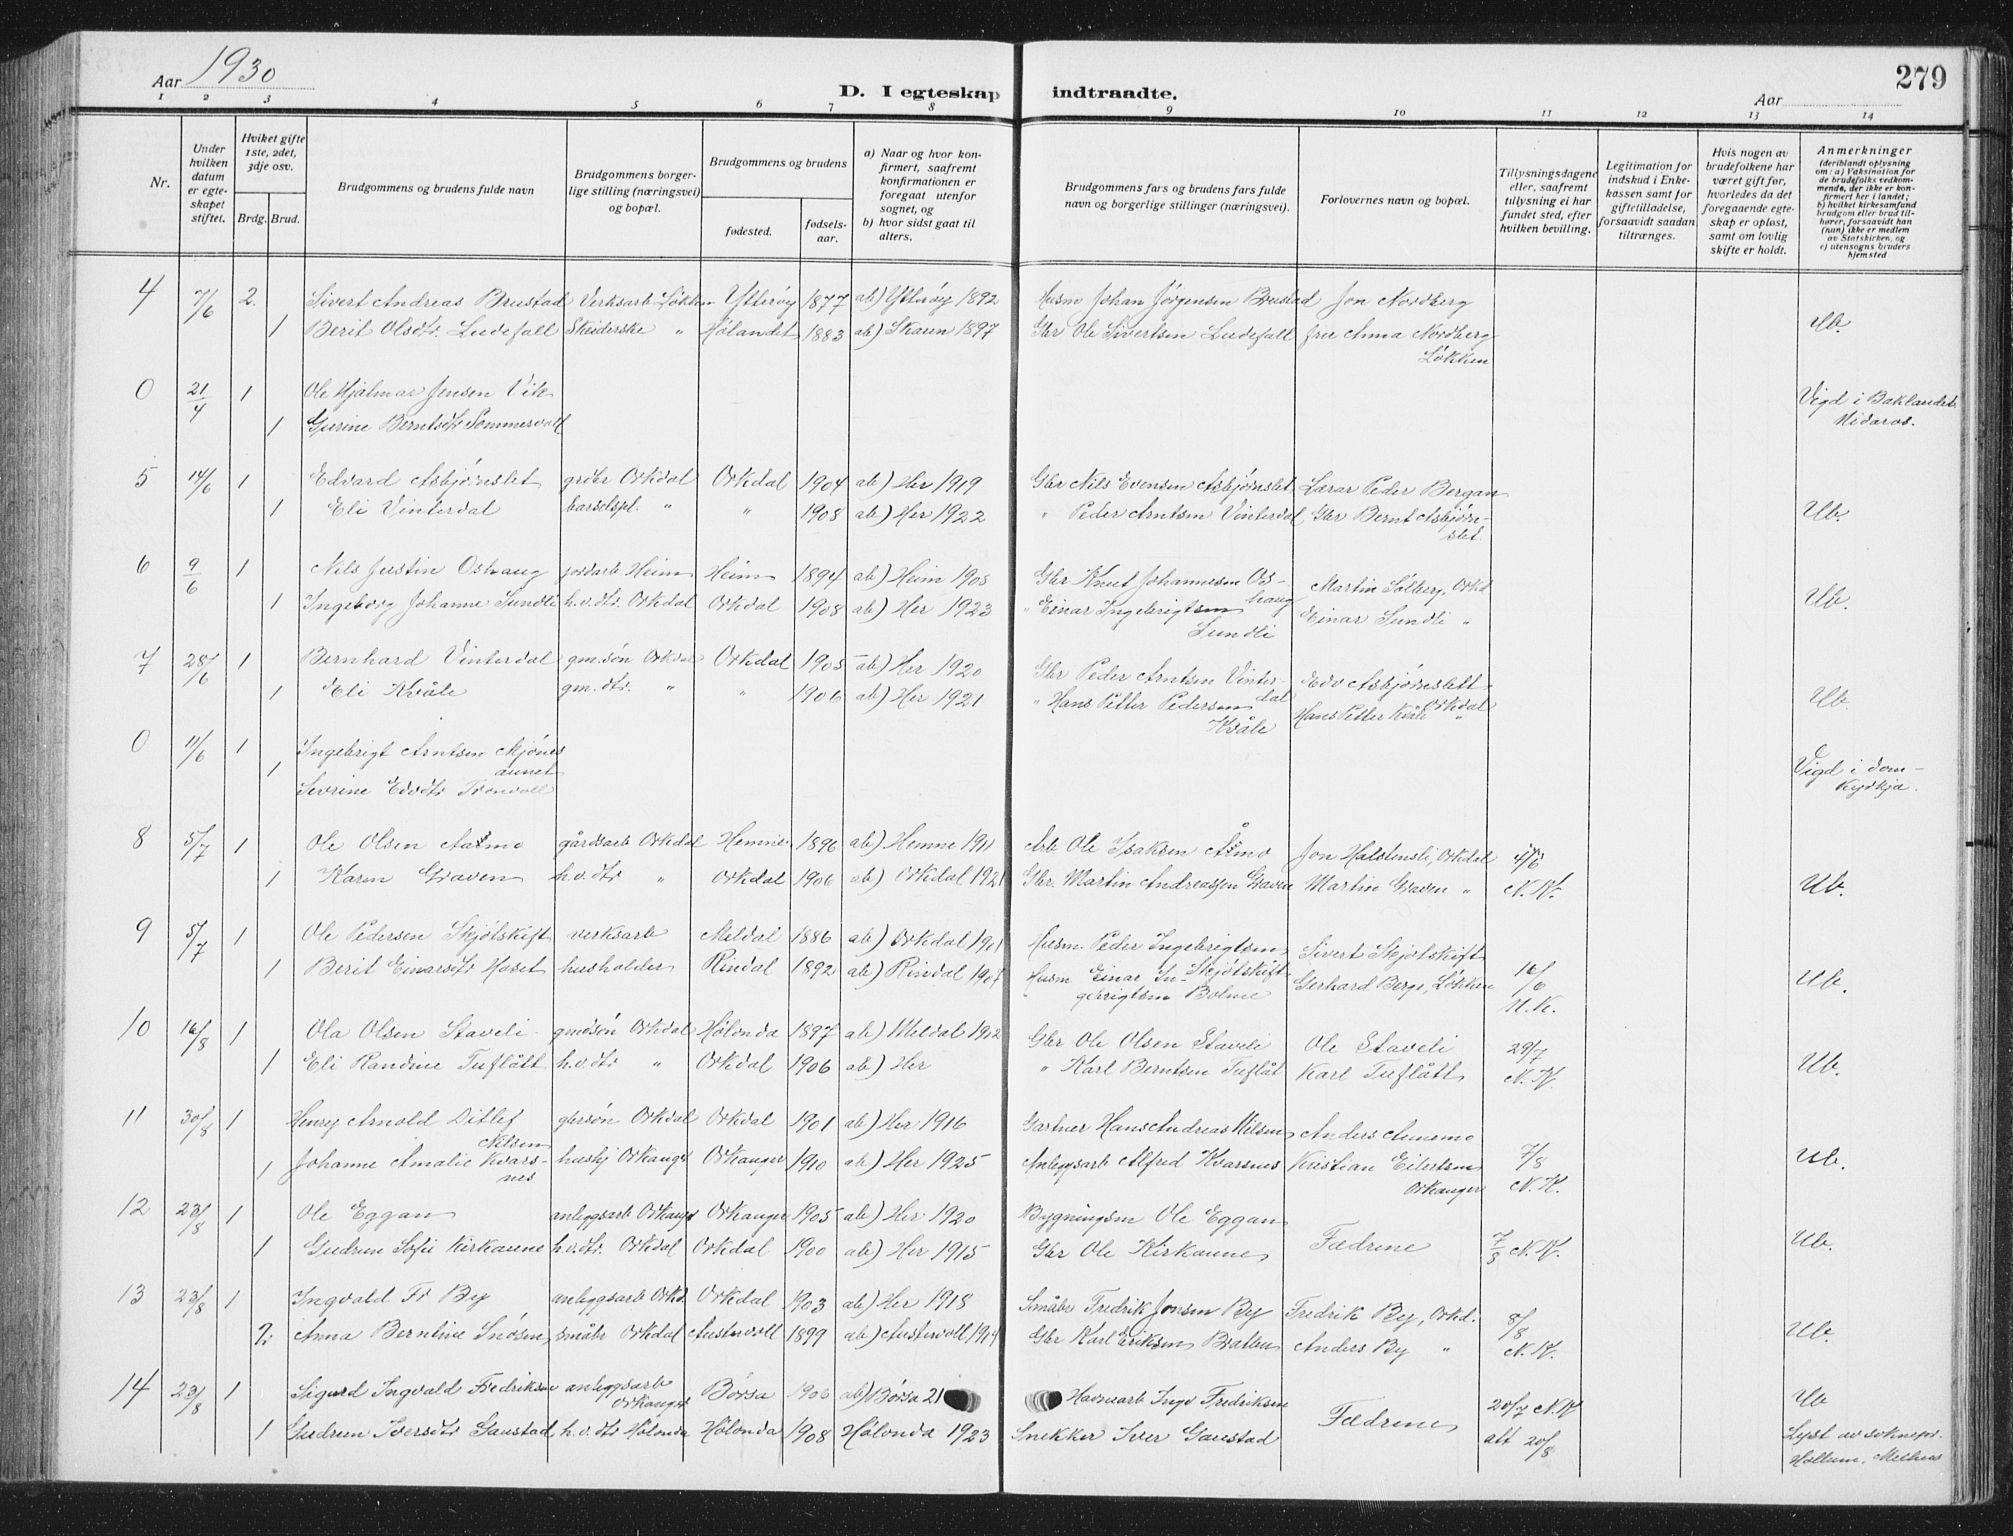 Aar 1930
D. I egteskap indtraadte.
Aar
279
1 2 3 4 5 6 7 8 9 10 11 12 13 14
Nr.
Under hvilken datum er egteskapet stiftet.
Hviket gifte 1ste, 2det, 3dje osv.
Brdg. Brud.
Brudgommens og brudens fulde navn
Brudgommens borgerlige stilling (næringsvei) og bopæl.
Brudgommens og brudens
fødested.
fødselsaar.
a) Naar og hvor konfirmert, saafremt konfirmationen er foregaat utenfor sognet, og b) hvor sidst gaat til alters.
Brudgommens fars og brudens fars fulde navn og borgerlige stillinger (næringsvei).
Forlovernes navn og bopæl.
Tillysningsdagene eller, saafremt tillysning ei har fundet sted, efter hvilken bevilling.
Legitimation for indskud i Enkekassen samt for giftetilladelse, forsaavidt saadan tiltrænges.
Hvis nogen av brudefolkene har været gift før, hvorledes da det foregaaende egteskap er opløst, samt om lovlig skifte er holdt.
Anmerkninger (deriblandt oplysning om: a) Vaksination for de brudefolks vedkommende, der ikke er konfirmert her i landet; b) hvilket kirkesamfund brudgom eller brud tilhører, forsaavidt han (hun) ikke er medlem av Statskirken, og c) utensogns bruders hjemsted
4 7/6 2. Sivert Andreas Brustad Verksarb Løkken Ytterøy 1877 ab) Ytterøy 1892 Husm Johan Jørgensen Brustad Jon Nordberg
1 Berit Olsdtr. Ludefall Skeiderske " Hølandet 1883 ab) Skaun 1897 Gbr Ole Sivertsen Ludefall fru Anna Nordberg Ub.
Løkken
0 21/4 1 Ole Hjalmar Jensen Vik Vigd i Baklandet
1 Gurine Berntsdtr Sommervoll Nidaros.
5 14/6 1 Edvard Asbjørnslet grdbr Orkdal Orkdal 1904 ab) Her 1919 Gbr Nils Evensen Asbjørnslet Lærar Peder Bergan
1 Eli Vinterdal barselspl. " " 1908 ab) Her 1922 " Peder Arntsen Vinterdal Gbr Bernt Asbjørn- Ub.
slet.
6 9/6 1 Nils Justin Oshaug jordarb Heim Heim 1894 ab) Heim 1908 Gbr Knut Johannesen Os- Martin Solberg, Orkd
haug
1 Ingeborg Johanne Sundli h.v.dtr. Orkdal Orkdal 1908 ab) Her 1923 " Einar Ingebrigtsen Einar Sundli " Ub.
Sundli
7 28/6 1 Bernhard Vinterdal gm.søn Orkdal Orkdal 1905 ab) Her 1920 Gbr Peder Arntsen Vinter- Edv Asbjørnslett
dal Orkdal
1 Eli Kvåle gm.dtr. " " 1906 ab) Her 1921 " Hans Petter Pedersen Hans Petter Kvåle " Ub.
Kvåle
0 11/6 1 Ingebrigt Arntsen Mjønes
aunet Vigd i Dom-
1 Sevrine Edvdtr Tronvoll Kyrkja.
8 5/7 1 Ole Olsen Aasmo gårdsarb Orkdal Hemne 1896 ab) Hemne 1911 Arb Ole Isaksen Åsmo Jon Halstensli, Orkdal
1 Karen Graven h.v.dtr " Orkdal 1906 ab) Orkdal 1921 Gbr. Martin Andreassen Graven Martin Graven " N.K. Ub.
9 5/7 1 Ole Pedersen Skjøtskift verksarb Meldal 1886 ab) Orkdal 1901 Husm. Peder Ingebrigtsen Sivert Skjøtskift
Skjøtskift
1 Berit Einarsdtr Hoset husholder Rindal 1892 ab) Rindal 1908 Husm Einar In- Gerhard Berge, Løkken 16/6 Ub.
gebrigtsen Bolme N.K.
10 16/8 1 Ola Olsen Staveli gmdsøn Orkdal Hølonda 1897 ab) Meldal 1912 Gbr Ole Olsen Staveli Ole Staveli 29/7
1 Eli Randine Tuflått h.v.dtr " Orkdal 1906 ab) Her " Karl Berntsen Tuflåt Karl Tuflått N.K. Ub.
11 30/8 1 Henry Arnold Ditlef gbrsøn Orkdal Orkdal 1901 ab) Her 1916 Gartner Hans Andreas Nilsen Anders Aunemo
Nilsen
1 Johanne Amalie Kvars- hushj Orkanger Orkanger 1910 ab) Her 1925 Anleggsarb Alfred Kvarsnes Kristian Eilertsen 7/8 Ub.
nes Orkanger N.K.
12 23/8 1 Ole Eggan anleggsarb Orkanger Orkanger 1905 ab) Her 1920 Bygningsm Ole Eggan
1 Gudrun Sofie Kirkaune h.v.dtr. Orkdal Orkdal 1900 ab) Her 1915 Gbr Ole Kirkaune Fædrene 7/8 N.K. Ub.
13 23/8 1 Ingvald Fr By anleggsarb Orkd. Orkdal 1903 ab) Her 1918 Småbr Fredrik Jonsen By Fredrik By, Orkd. 8/8
2. Anna Berntine Snøsen småbr Orkdal Austervoll 1899 ab) Austervoll 1914 Gbr Karl Eriksen Bratten Anders By " N.K. Ub.
14 23/8 1 Sigurd Ingvald Fredriksen anleggsarb Børsa 1906 ab) Børsa 21 Havnearb Ingv Fredriksen 20/7 N.K. Ub
Orkanger Fædrene
1 Gudrun Iversdtr Gaustad h.v.dtr Hølonda Hølonda 1908 Hølonda 1923 Snekker Iver Gaustad att 20/8 Lyst av soknepr.
Hollum, Melhus